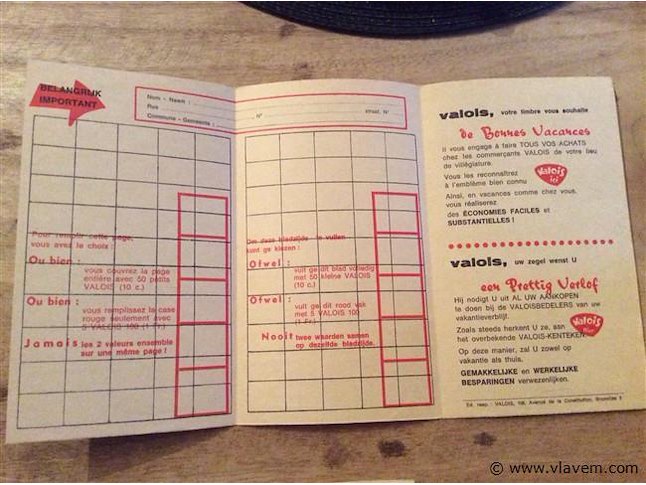 BELANGRIJK
IMPORTANT
Nom - Naam :
Rue N° straat N°
Commune - Gemeente :
Pour remplir cette page,
vous avez le choix :
Ou bien :
vous couvrez la page
entière avec 50 petits
VALOIS (10 c.)
Ou bien :
vous remplissez la case
rouge seulement avec
5 VALOIS 100 (1 Fr.)
Jamais les 2 valeurs ensemble
sur une même page !
Om deze bladzijde te vullen
kunt ge kiezen :
Ofwel :
vult ge dit blad volledig
met 50 kleine VALOIS
(10 c.)
Ofwel :
vult ge dit rood vak
met 5 VALOIS 100
(1 Fr.)
Nooit twee waarden samen
op dezelfde bladzijde.
valois, votre timbre vous souhaite
de Bonnes Vacances
Il vous engage à faire TOUS VOS ACHATS
chez les commerçants VALOIS de votre lieu
de villégiature.
Vous les reconnaîtrez
à l'emblème bien connu
Valois
ici
Ainsi, en vacances comme chez vous,
vous réaliserez
des ÉCONOMIES FACILES et
SUBSTANTIELLES !
valois, uw zegel wenst U
een Prettig Verlof
Hij nodigt U uit AL UW AANKOPEN
te doen bij de VALOISBEDELERS van uw
vakantieverblijf.
Zoals steeds herkent U ze, aan
het overbekende VALOIS-KENTEKEN
Valois
hier
Op deze manier, zal U zowel op
vakantie als thuis,
GEMAKKELIJKE en WERKELIJKE
BESPARINGEN verwezenlijken.
Ed. resp. : VALOIS, Avenue de la Constitution, Bruxelles
© www.vlavem.com